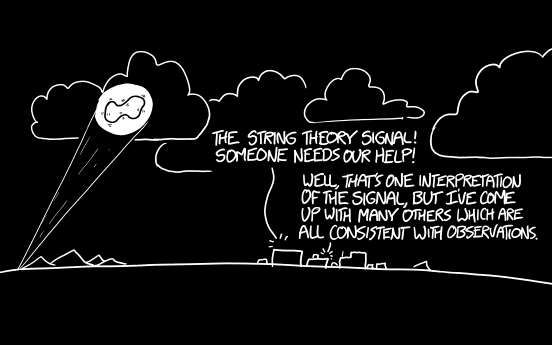 THE STRING THEORY SIGNAL!
SOMEONE NEEDS OUR HELP!
WELL, THAT'S ONE INTERPRETATION
OF THE SIGNAL, BUT I'VE COME
UP WITH MANY OTHERS WHICH ARE
ALL CONSISTENT WITH OBSERVATIONS.